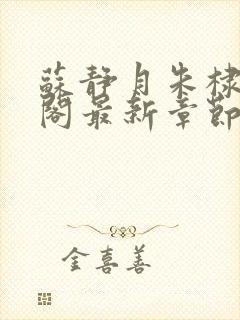 蘇靜月朱棣
閣最新章節
金喜善